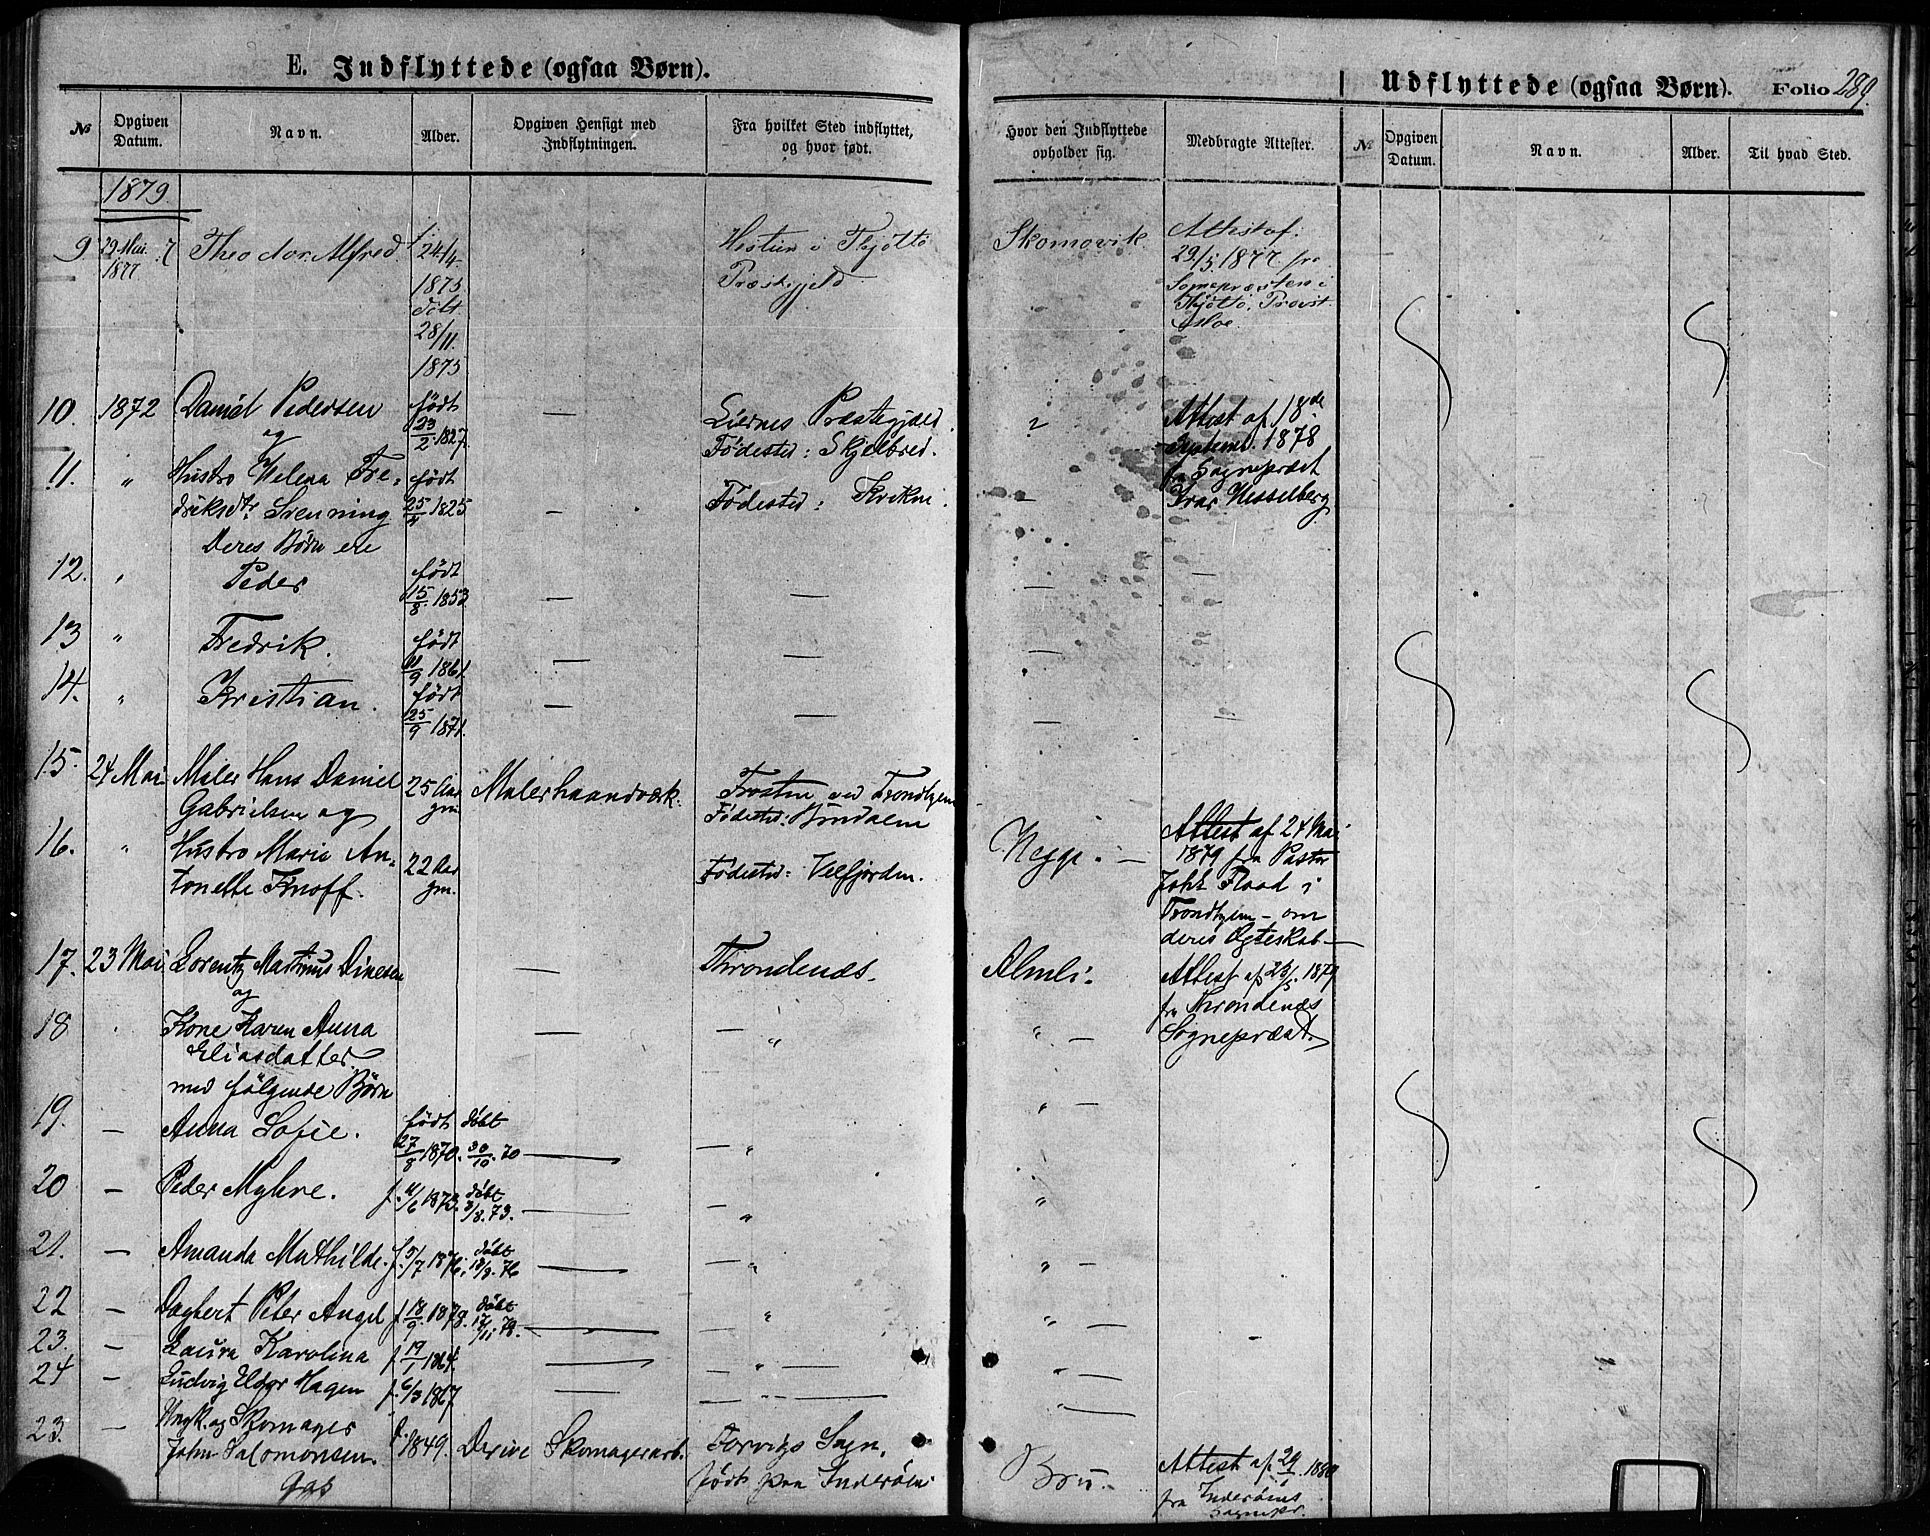 E. Indflyttede (ogsaa Børn).
Udflyttede (ogsaa Børn). Folio 289.
№ Opgiven Datum. Navn. Alder. Opgiven Hensigt med Indflytningen. Fra hvilket Sted indflyttet, og hvor født. Hvor den Indflyttede opholder sig. Medbragte Attester. № Opgiven Datum. Navn. Alder. Til hvad Sted.
1879.
9. 29 Mai 1877 Theodor Alfred f. 24/4. Tjøttø Skomovik Attest af
1875 Præstegjeld 29/5. 1877. fra
døbt Sognepræsten i
28/11. Tjøttø, Provst
1875
10. 1872 Daniel Pedersen født — Liernes Præstegjæld. Attest af 18de
og 23/2. 1827. Fødested: Skjelbred. Septemb. 1878
11. " Hustro Helena Fre- født fra Sognepræst
driksdtr. Svenning 25/4 1825 — Fødested: Kvikni. — Ivar Hesselberg
Deres Børn ere
12. " Peder født
15/8. 1853 — — — —
13 " Fredrik. født
11/9 1861. — — —
14. " Kristian. født
25/9 1871. — — — —
15. 24 Mai Maler Hans Daniel 25 Aar Malerhaandværk. Frosten ved Trondhjem
Gabrielsen og gm. Fødested: Bindalen
16. " Hustro Marie An- 22 Aar Hegge. — Attest af 24 Mai
tonette Knoff. gm. Fødested: Velfjorden. 1879 fra Pastor
Joh: Flood i
Trondhjem – om
deres Ægteskab —
17. 23 Mai Lorentz Martinus Dinesen — Throndenæs Almli. Attest af 23/5. 1879
og fra Throndenæs
18 " Kone Karen Anna — — " " — Sognepræst.
Eliasdatter
med følgende Børn
19. — Anna Sofie. født 27/8 1870. døbt 30/10. 70 — — " " —
20 — Peder Myhre. f. 11/6 1873. døbt 3/8. 73. — — " "
21. — Amanda Mathilde. f. 5/7 1876. døbt — — " " —
22 — Dagbert Peter Angel f. 18/9. 1878. døbt 17/11 78. — — " " —
23. — Laura Karolina f. 19/1 1864. — — " — " —
24 — Ludvig Hagen f. 6/3 1867 — — " — " —
23. — Ungk. og Skomager
John Salomonsen. f. 1849. Drive Skomagerarb. Torvigs Sogn, Attest af 29/1. 1880
født paa Inderøen fra Inderøens
Sognepr.